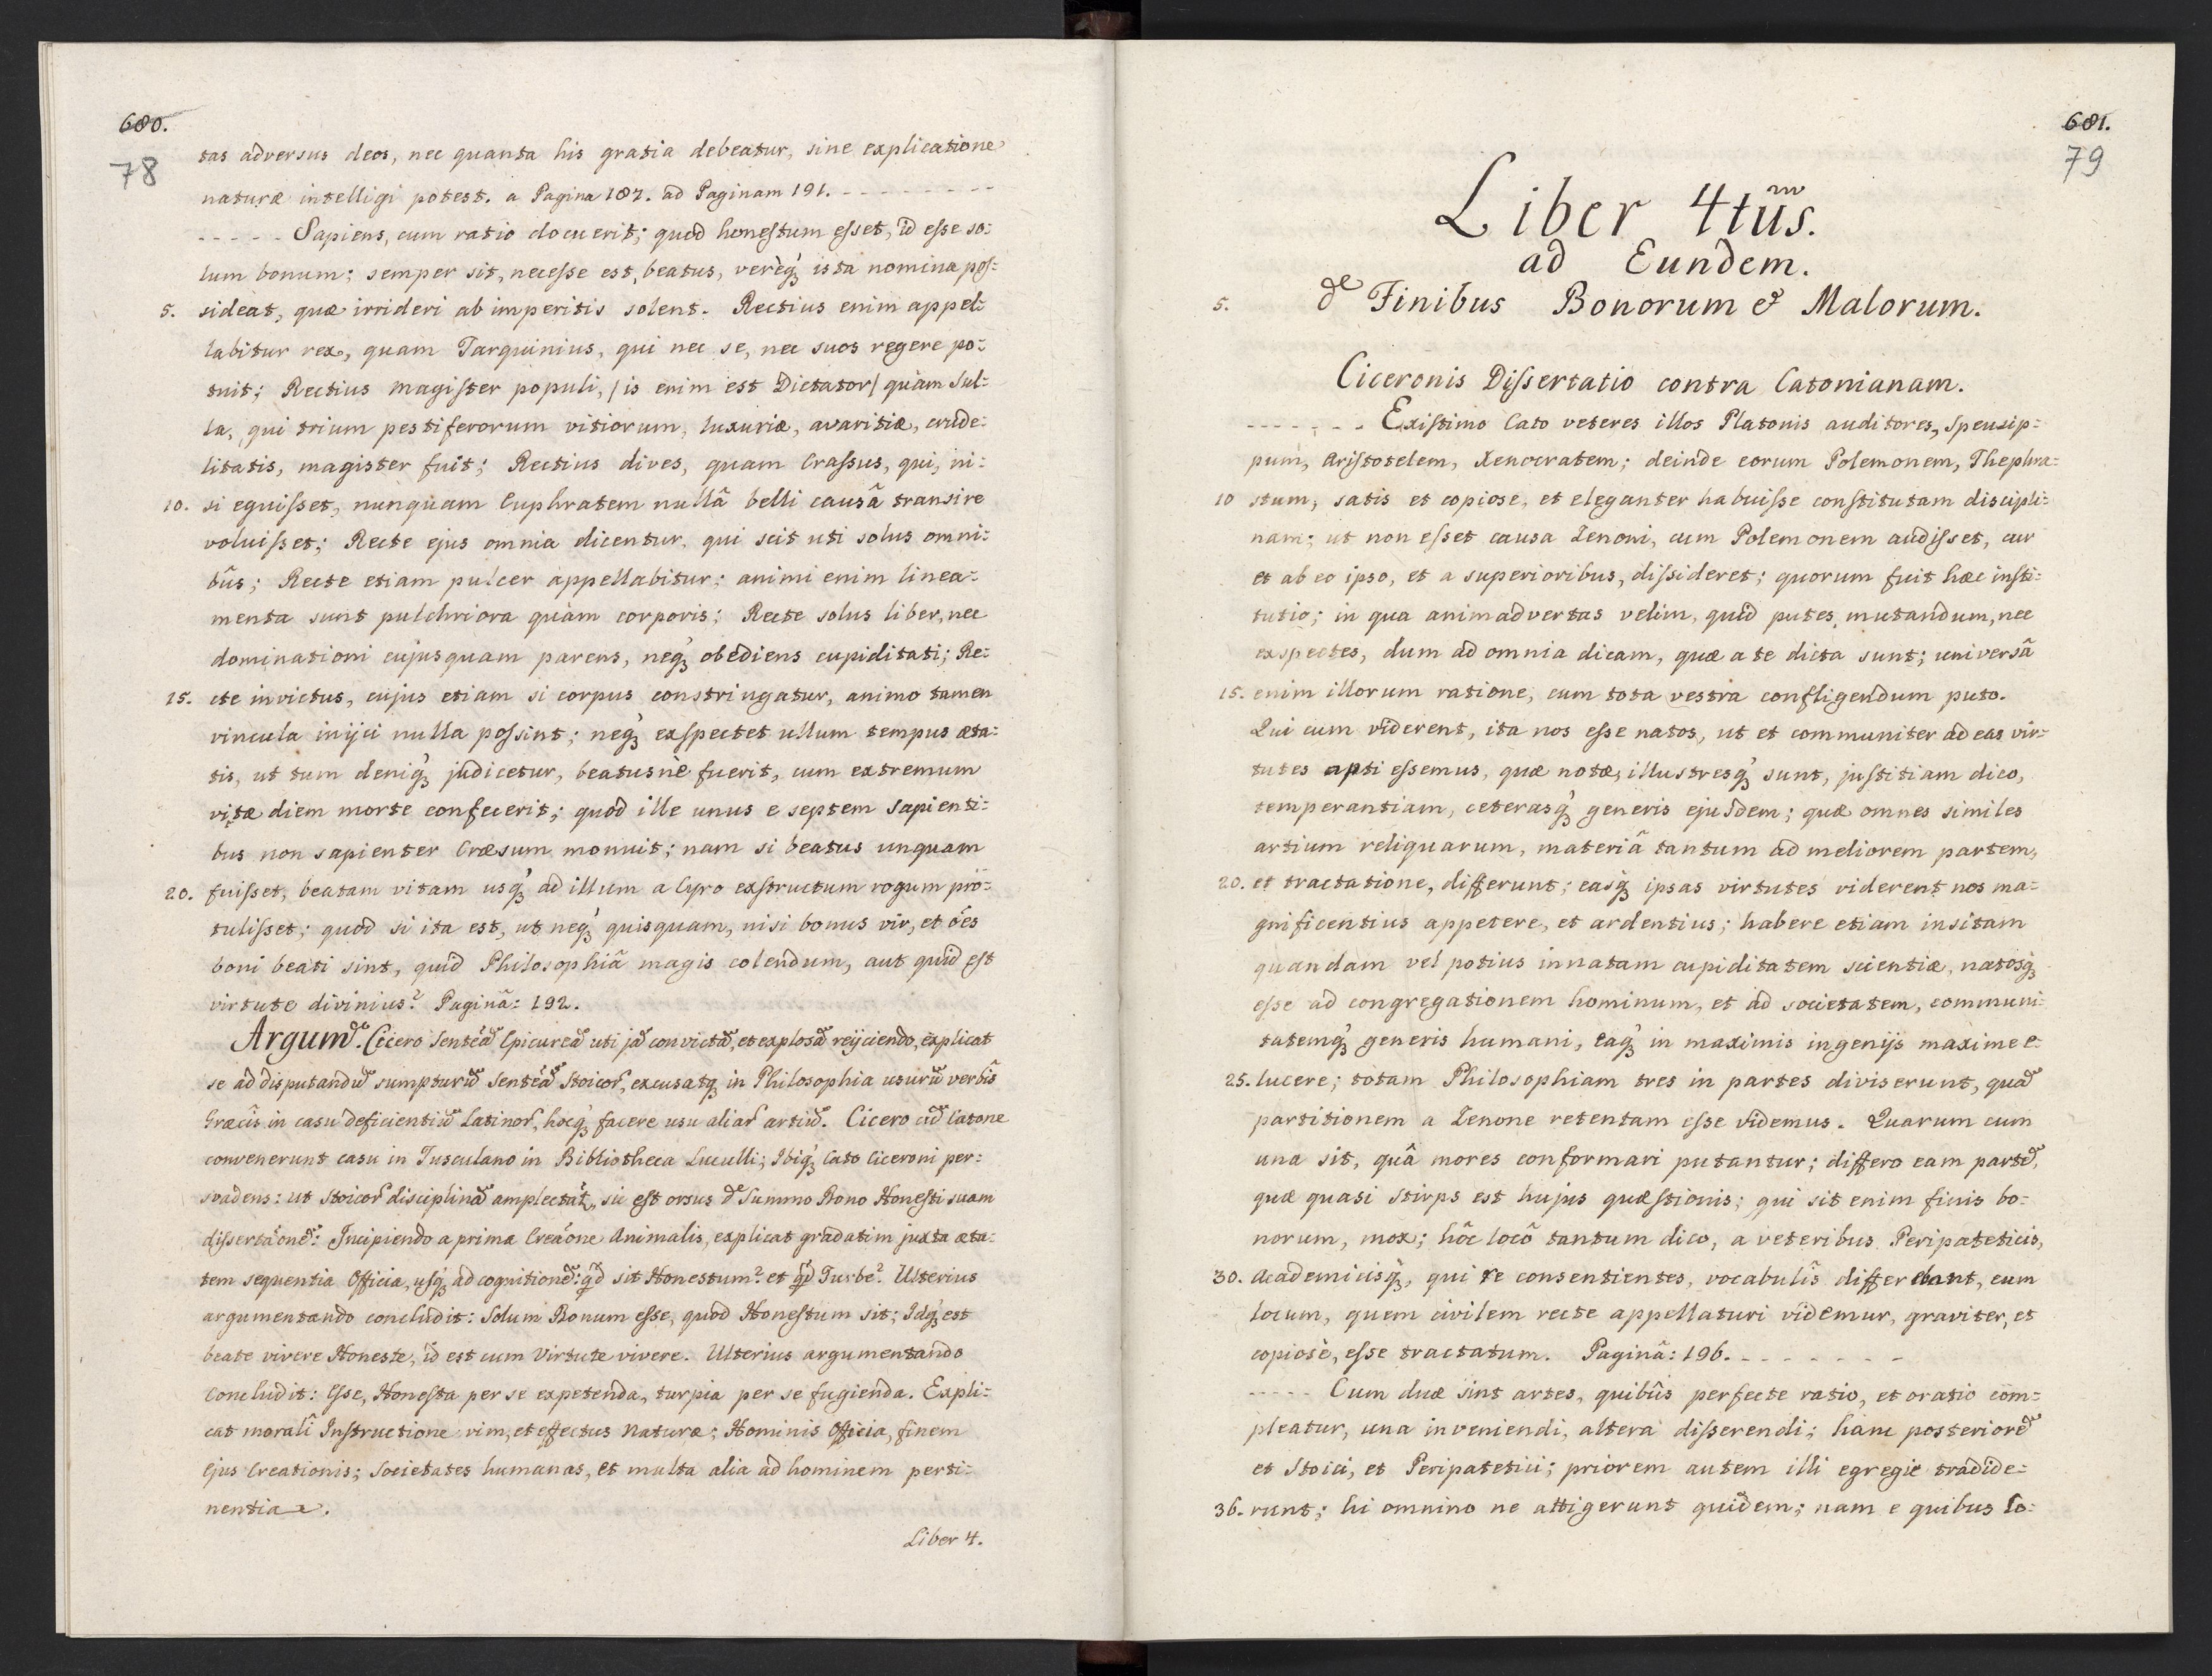 680.
78
tas adversus deos, nec quanta his gratia debeatur, sine explicatione
naturæ intelligi potest. a Pagina 187. ad Paginam 191. - - - - - - - - -
- - - - - Sapiens, cum ratio docuerit; quod honestum esset, id esse so=
lum bonum; semper sit, necesse est, beatus, verèq́ꝫ ista nomina pos=
5. sideat, quæ irrideri ab imperitis solent. Rectius enim appel=
labitur rex, quam Tarquinius, qui nec se, nec suos regere po=
tuit; Rectius magister populi, /is enim est Dictator/ quàm Sul=
la, qui trium pestiferorum vitiorum, luxuriæ, avaritiæ, crude=
litatis, magister fuit; Rectius dives, quam Crassus, qui, ni=
10. si eguisset, nunquam Euphratem nullâ belli causâ transire
voluisset; Recte ejus omnia dicentur, qui scit uti solus omni=
bûs; Recte etiam pulcer appellabitur; animi enim linea=
menta sunt pulchriora quàm corporis; Recte solus liber, nec
dominationi cujusquam parens, neq́ꝫ obediens cupiditati; Re=
15. cte invictus, cujus etiam si corpus constringatur, animo tamen
vincula inijci nulla possint; neq́ꝫ exspectet ullum tempus æta=
tis, ut tum deniq́ꝫ judicetur, beatusnè fuerit, cum extremum
vitæ diem morte confecerit; quod ille unus e septem Sapienti=
bus non sapienter Cræsum monuit; nam si beatus unquam
20. fuisset, beatam vitam usq́ꝫ ad illum a Cyro exstructum rogum pro=
tulisset; quod si ita est, ut neq́ꝫ quisquam, nisi bonus vir, et oẽs
boni beati sint, quid Philosophiâ magis colendum, aut quid est
virtute divinius? Paginâ: 192.
Argum̃. Cicero Sentẽã Epicureã uti jã convictã, et explosã reijciendo, explicat
se ad disputandũ sumpturũ Sentẽã Stoicor̃, excusatq́ꝫ in Philosophia usurũ verbîs
Græcîs in casu deficientiũ Latinor̃, hocq́ꝫ facere usu aliar̃ artiũ. Cicero cũ Catone
convenerunt casu in Tusculano in Bibliotheca Luculli; Ibiq́ꝫ Cato Ciceroni per=
svadens: ut Stoicor̃ disciplinã amplectat̃, sic est orsus de Summo Bono Honesti suam
dissertãonẽ: Incipiendo a prima Creãone Animalis, explicat gradatim juxta æta=
tem sequentia Officia, usq́ꝫ ad cognitionẽ: qd̃ sit Honestum? et qd̃ Turbe? Ulterius
argumentando concludit: Solum Bonum esse, quod Honestum sit; Idq́ꝫ est
beate vivere Honeste, id est cum Virtute vivere. Ulterius argumentando
concludit: Esse, Honesta per se expetenda, turpia per se fugienda. Expli=
cat moralî Instructione vim, et effectus Naturæ; Hominis Officia, finem
Ejus Creationis; Societates humanas, et multa alia ad hominem perti=
nentia.
Liber 4.
681.
79
Liber 4tũs.
ad Eundem.
5. de Finibus Bonorum & Malorum.
Ciceronis Dissertatio contra Catonianam.
- - - - - - Existimo Cato veteres illos Platonis auditores, Speusip=
pum, Aristotelem, Xenocratem; deinde eorum Polemonem, Thephra=
10 stum, satis et copiose, et eleganter habuisse constitutam discipli=
nam; ut non esset causa Zenoni, cum Polemonem audisset, cur
et ab eo ipso, et a superioribus, dissideret; quorum fuit hæc insti=
tutio; in qua animadvertas velim, quid putes mutandum, nec
exspectes, dum ad omnia dicam, quæ a te dicta sunt; universâ
15. enim illorum ratione, cum tota vestra confligendum puto.
Qui cum viderent, ita nos esse natos, ut et communiter ad eas vir=
tutes apti essemus, quæ notæ, illustresq́ꝫ sunt, justitiam dico,
temperantiam, ceterasq́ꝫ generis ejusdem; quæ omnes similes
artium reliquarum, materiâ tantum ad meliorem partem,
20. et tractatione, differunt; easq́ꝫ ipsas virtutes viderent nos ma=
gnificentius appetere, et ardentius; habere etiam insitam
quandam vel potius innatam cupiditatem scientiæ, natosq́ꝫ
esse ad congregationem hominum, et ad societatem, communi=
tatemq́ꝫ generis humani, eaq́ꝫ in maximis ingenijs maxime e=
25. lucere; totam Philosophiam tres in partes diviserunt, quã
partitionem a Zenone retentam esse videmus. Quarum cum
una sit, quâ mores conformari putantur; differo eam partẽ,
quæ quasi stirps est hujus quæstionis; qui sit enim finis bo=
norum, mox; hôc locô tantum dico, a veteribus Peripateticis,
30. Academicisq́ꝫ, qui re consentientes, vocabulîs differebant, eum
locum, quem civilem recte appellaturi videmur, graviter, et
copiosè, esse tractatum. Paginâ: 196. - - - - - - -
- - - - - Cum duæ sint artes, quibûs perfecte ratio, et oratio com=
pleatur, una inveniendi, altera disserendi; hanc posteriorẽ
et Stoici, et Peripatetici; priorem autem illi egregie tradide=
36. runt; hi omnino ne attigerunt quidem; nam e quibus lo=